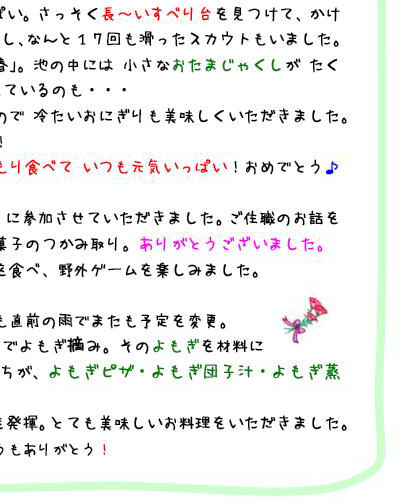 ぱい。さっそく長〜いすべり台を見つけて、かけ
し、なんと17回も滑ったスカウトもいました。
春」。池の中には 小さなおたまじゃくしが たく
ているのも・・・
ので 冷たいおにぎりも美味しくいただきました。
!
り食べて いつも元気いっぱい！おめでとう♪
に参加させていただきました。ご住職のお話を
菓子のつかみ取り。ありがとうございました。
を食べ、野外ゲームを楽しみました。
も直前の雨でまたも予定を変更。
でよもぎ摘み。そのよもぎを材料に
ちが、よもぎピザ・よもぎ団子汁・よもぎ蒸
を発揮。とても美味しいお料理をいただきました。
うもありがとう！